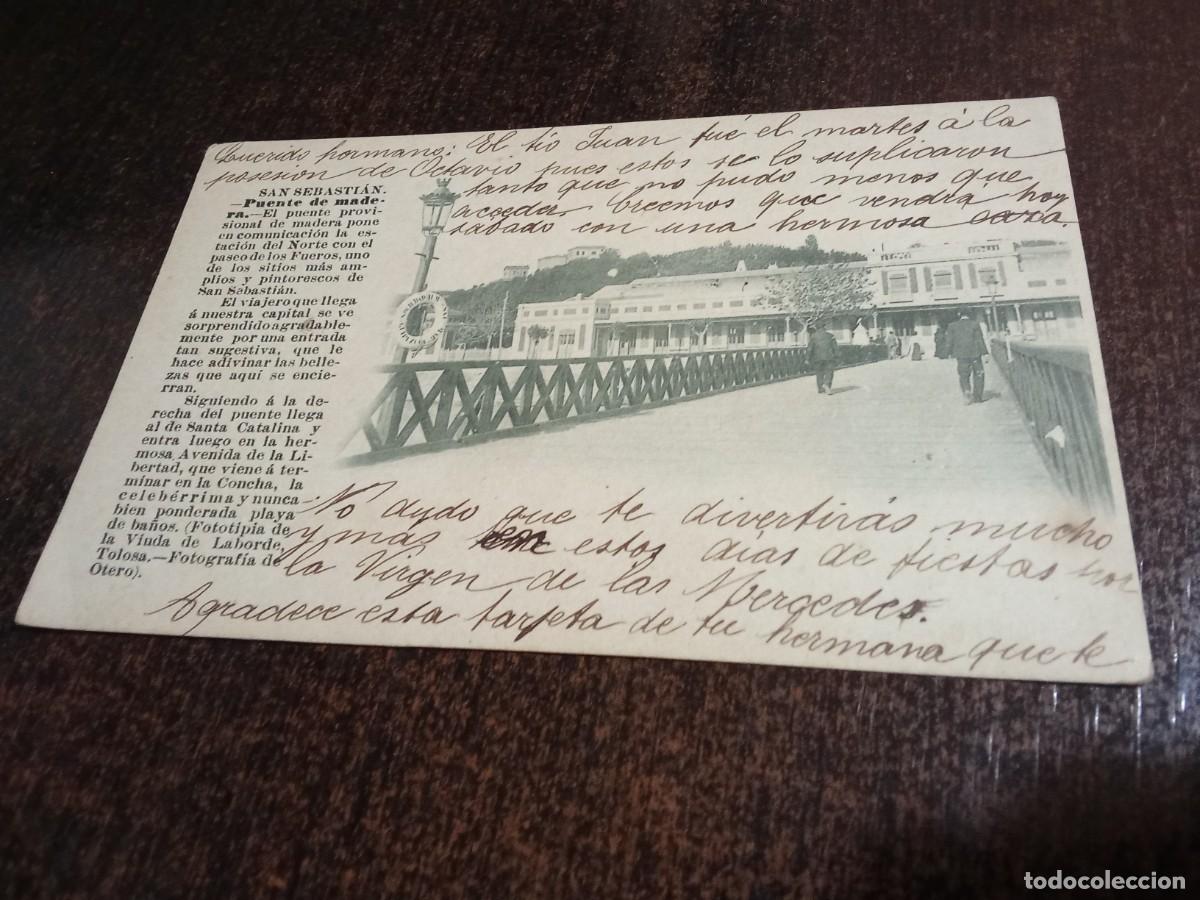 Querido hermano: El tio Juan fué el martes á la
posesion de Octavio pues estos se lo suplicaron
tanto que no pudo menos que
acceder. Creemos que vendrá hoy
sábado con una hermosa
SAN SEBASTIÁN.
—Puente de made-
ra.—El puente provi-
sional de madera pone
en comunicación la es-
tación del Norte con el
paseo de los Fueros, uno
de los sitios más am-
plios y pintorescos de
San Sebastián.
El viajero que llega
á nuestra capital se ve
sorprendido agradable-
mente por una entrada
tan sugestiva, que le
hace adivinar las belle-
zas que aquí se encie-
rran.
Siguiendo á la de-
recha del puente llega
al de Santa Catalina y
entra luego en la her-
mosa Avenida de la Li-
bertad, que viene á ter-
minar en la Concha, la
celebérrima y nunca
bien ponderada playa
de baños. (Fototipia de
la Viuda de Laborde,
Tolosa.—Fotografía de
Otero).
No dudo que te divertirás mucho
y más estos días de fiestas por
la Virgen de las Mercedes.
Agradece esta tarjeta de tu hermana que te
todocoleccion